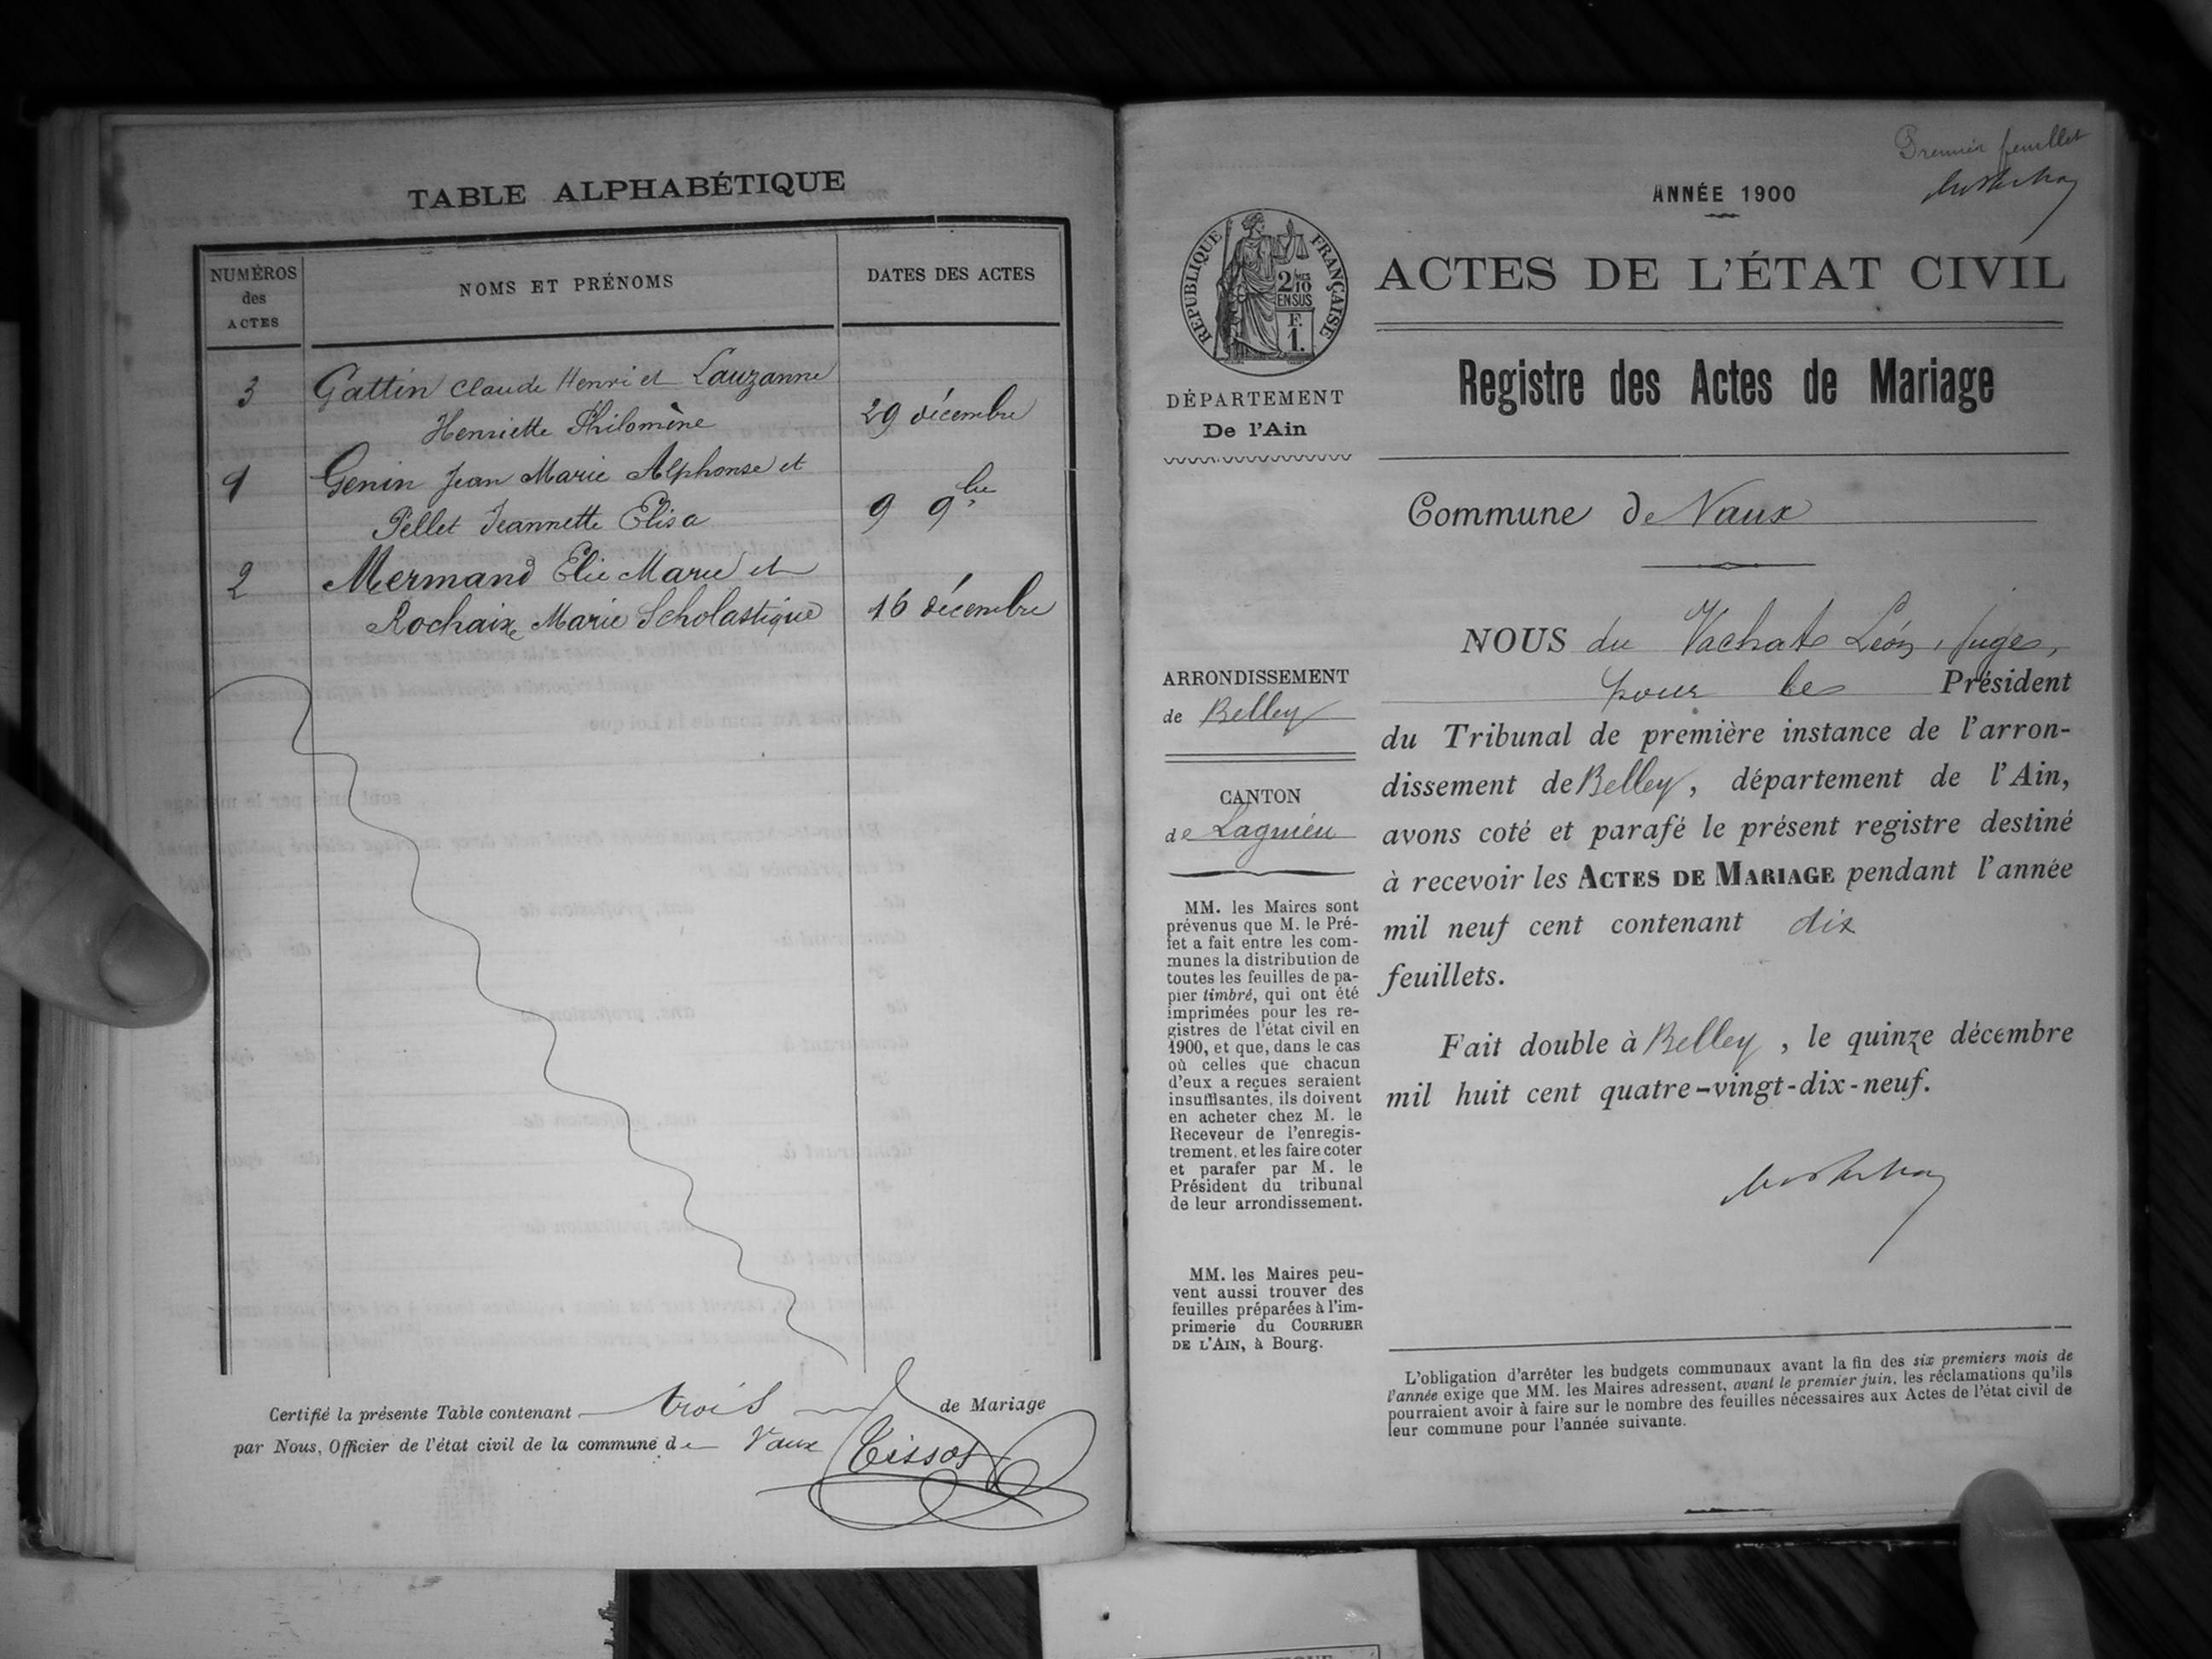 TABLE ALPHABÉTIQUE
NUMÉROS
des
ACTES
NOMS ET PRÉNOMS
DATES DES ACTES
3
Gattin Claude Henri et Lauzanne
Henriette Philomène
29 décembre
1
Genin Jean Marie Alphonse et
Pellet Jeannette Elisa
9 9bre
2
Mermand Elie Marie et
Rochaix Marie Scholastique
16 décembre
Certifié la présente Table contenant trois de Mariage
par Nous, Officier de l'état civil de la commune de Vaux
Tissot
Premier feuillet
ANNÉE 1900
RÉPUBLIQUE FRANÇAISE
2/10
EN SUS
F.
1.
ACTES DE L'ÉTAT CIVIL
Registre des Actes de Mariage
DÉPARTEMENT
De l'Ain
Commune de Vaux
ARRONDISSEMENT
de Belley
CANTON
de Lagnieu
MM. les Maires sont
prévenus que M. le Pré-
fet a fait entre les com-
munes la distribution de
toutes les feuilles de pa-
pier timbré, qui ont été
imprimées pour les re-
gistres de l'état civil en
1900, et que, dans le cas
où celles que chacun
d'eux a reçues seraient
insuffisantes, ils doivent
en acheter chez M. le
Receveur de l'enregis-
trement, et les faire coter
et parafer par M. le
Président du tribunal
de leur arrondissement.
MM. les Maires peu-
vent aussi trouver des
feuilles préparées à l'im-
primerie du COURRIER
DE L'AIN, à Bourg.
NOUS du Vachat Léon, juge,
pour le Président
du Tribunal de première instance de l'arron-
dissement de Belley, département de l'Ain,
avons coté et parafé le présent registre destiné
à recevoir les ACTES DE MARIAGE pendant l'année
mil neuf cent contenant dix
feuillets.
Fait double à Belley, le quinze décembre
mil huit cent quatre-vingt-dix-neuf.
L'obligation d'arrêter les budgets communaux avant la fin des six premiers mois de
l'année exige que MM. les Maires adressent, avant le premier juin, les réclamations qu'ils
pourraient avoir à faire sur le nombre des feuilles nécessaires aux Actes de l'état civil de
leur commune pour l'année suivante.